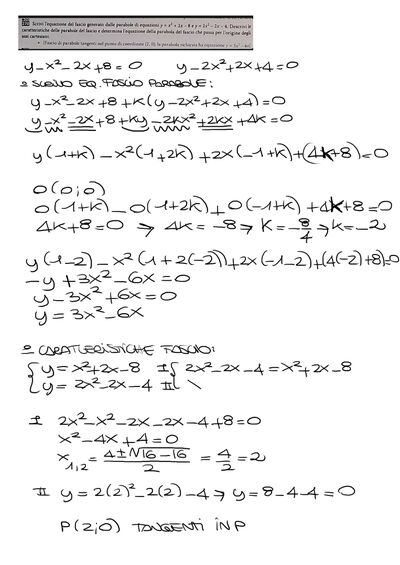 Scrivi l'equazione del fascio generato dalle parabole di equazioni y = x² + 2x - 8 e y = 2x² - 2x - 4. Descrivi le
caratteristiche delle parabole del fascio e determina l'equazione della parabola del fascio che passa per l'origine degli
assi cartesiani.
[Fascio di parabole tangenti nel punto di coordinate (2, 0); la parabola richiesta ha equazione y = 3x² - 6x]
y-x²-2x+8=0 y-2x²+2x+4=0
SCRIVO EQ. FASCIO PARABOLE:
y-x²-2x+8+K(y-2x²+2x+4)=0
y-x²-2x+8+Ky-2Kx²+2Kx+4K=0
y(1+K)-x²(1+2K)+2x(-1+K)+(4K+8)=0
O(0;0)
0(1+K)-0(1+2K)+0(-1+K)+4K+8=0
4K+8=0 → 4K=-8 → K=-8/4 → K=-2
y(1-2)-x²(1+2(-2))+2x(-1-2)+(4(-2)+8)=0
-y+3x²-6x=0
y-3x²+6x=0
y=3x²-6x
CARATTERISTICHE FASCIO:
{y=x²+2x-8 I {2x²-2x-4=x²+2x-8
{y=2x²-2x-4 II {\
I 2x²-x²-2x-2x-4+8=0
x²-4x+4=0
x₁,₂=(4±√16-16)/2=4/2=2
II y=2(2)²-2(2)-4 → y=8-4-4=0
P(2;0) TANGENTI IN P